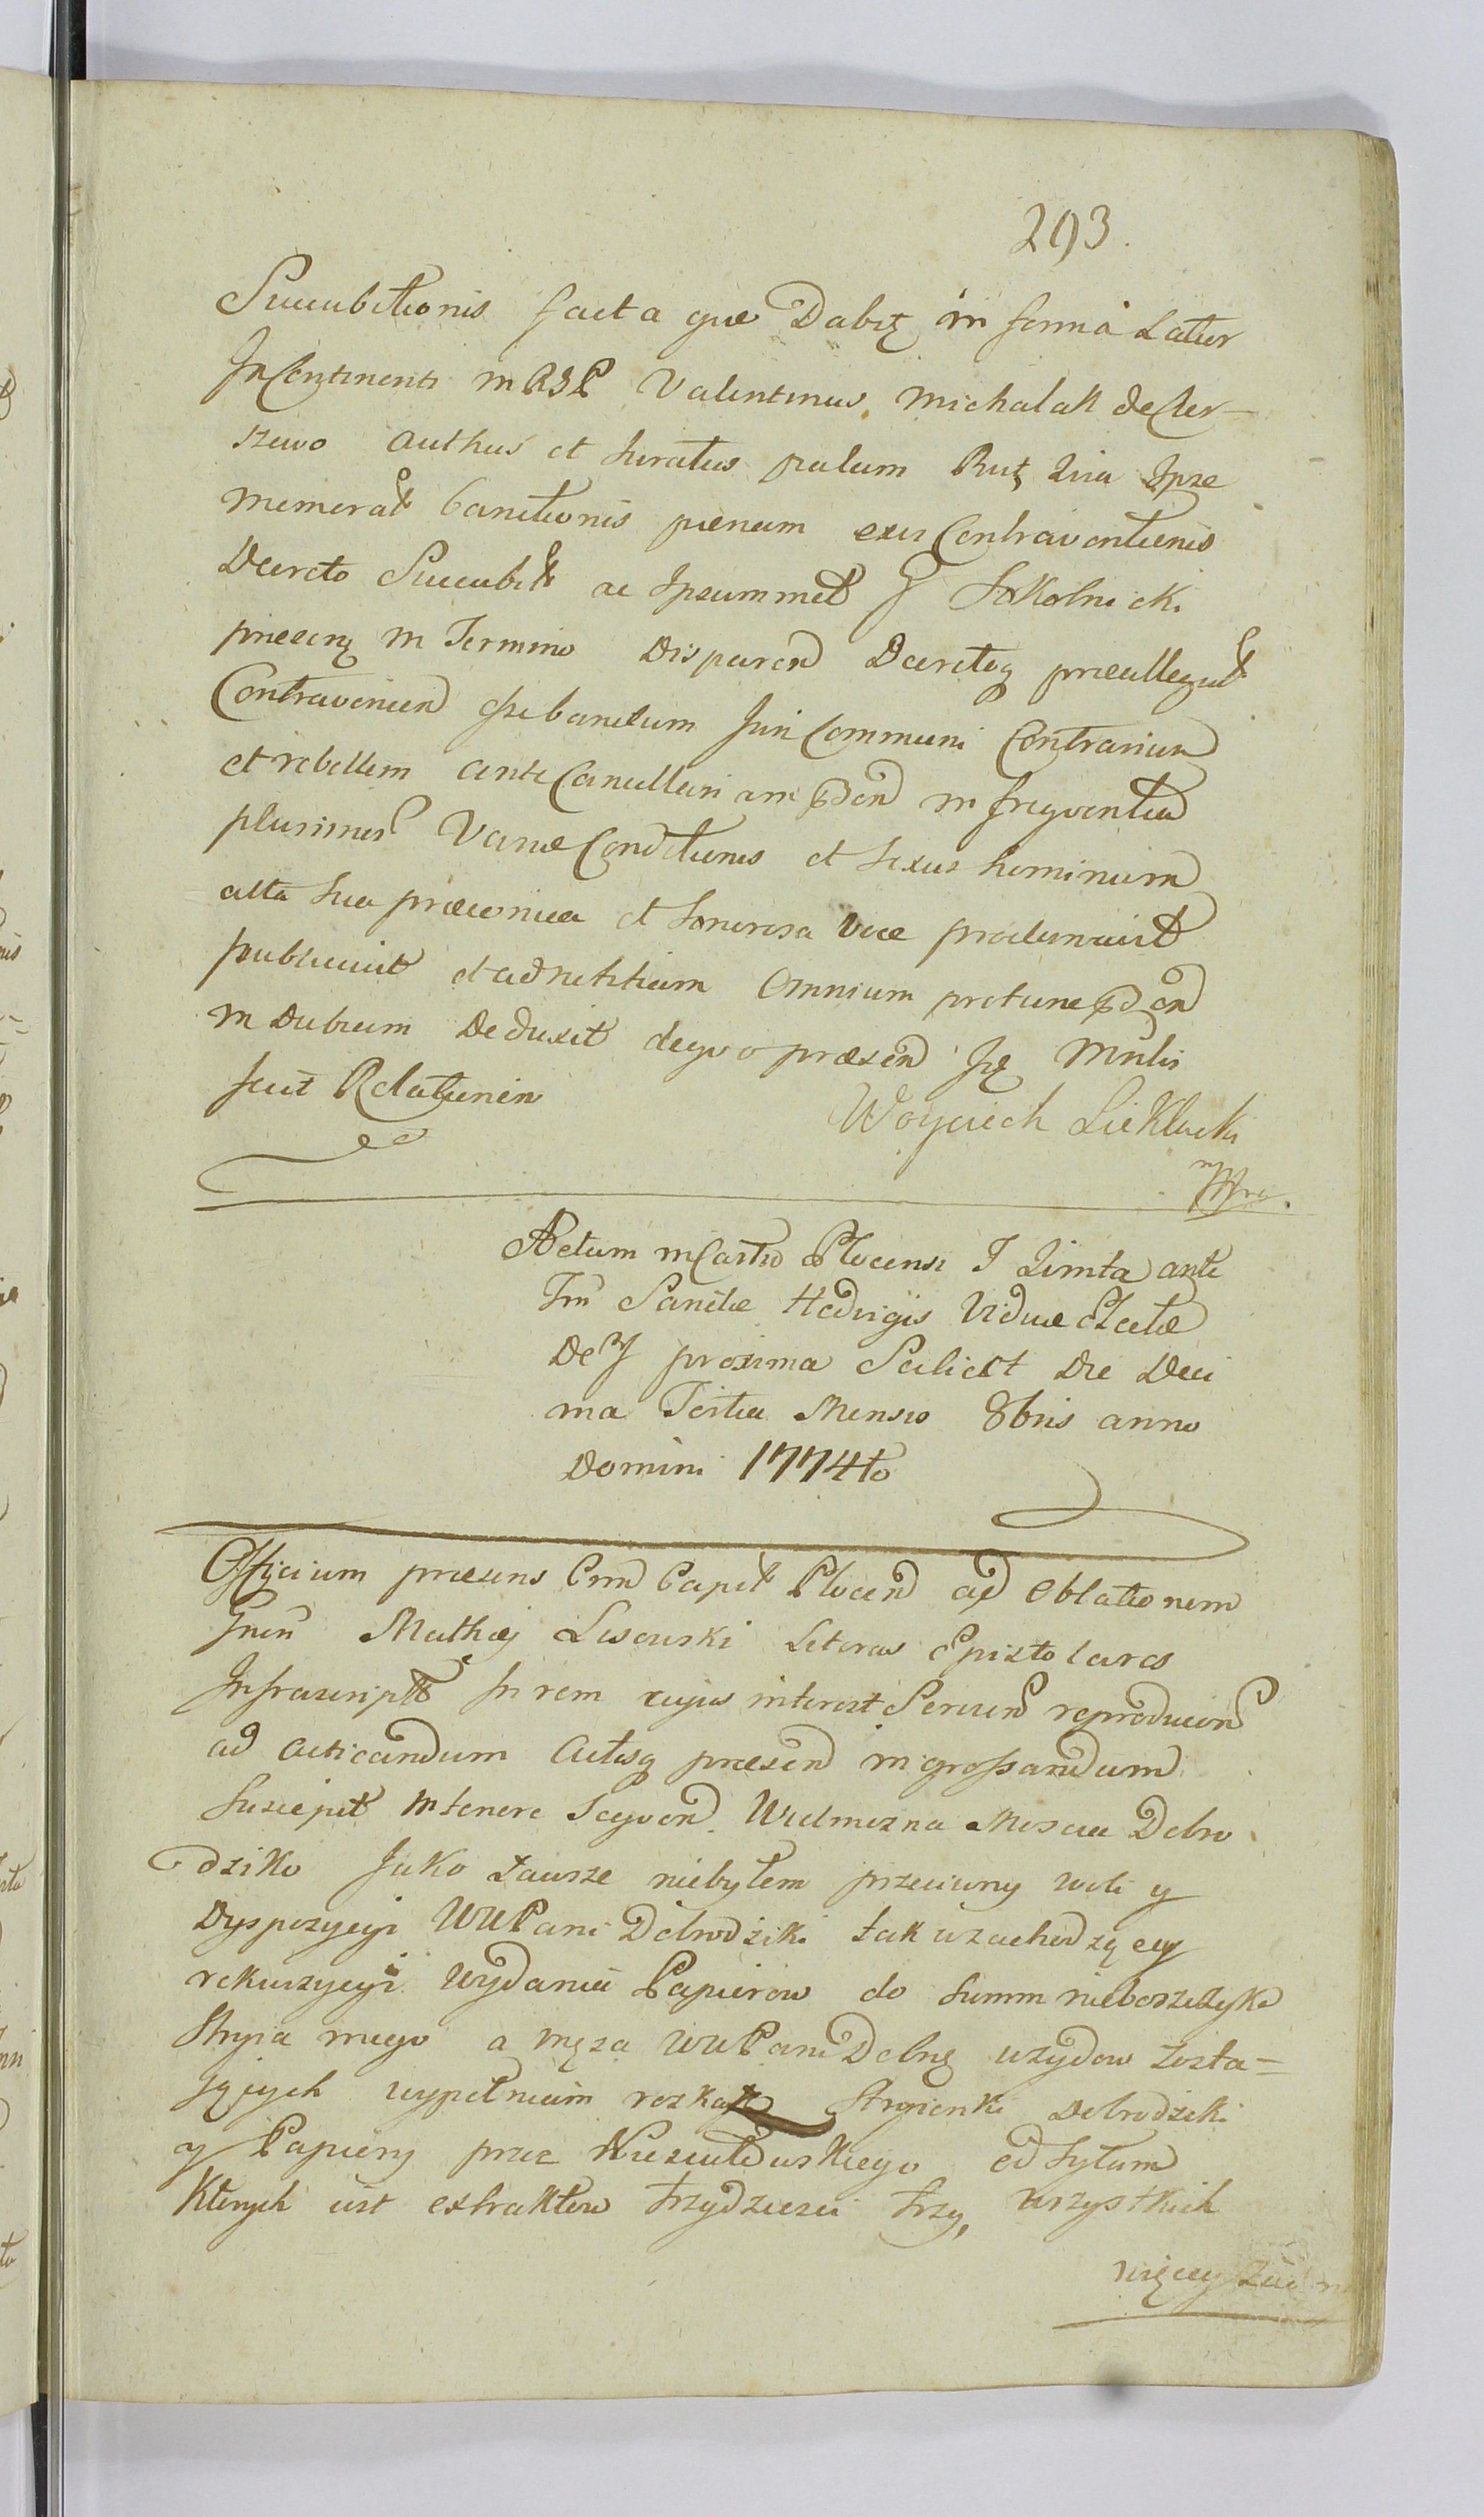 293.
Succubitionis facta que Dabit in forma Latier
In Continenti m RSP Valentinus Michalak de Cier-
szewo authus et Juratus palam Rut quia Ipse
memorat banitionis pænam exis Contraventionis
Decreto Succubit ac Ipsummet G Sokolnicki
præsens in Termino Disparen Decretoq præallegat
Contravenien esse banitum Juri Communi Contrarium
et rebellem ante Cancellariam in frequentia
plurimor Variæ Conditionis et sexus hominum
alta sua præconica et sonorosa voce proclamavit
publicavit et ad notitiam Omnium pretunc
in Dubium Deduxit de quo præsen Mnlis
fecit Relationem
Woyciech
Actum in Castro Plocensi F Quinta ante
Fm Sanctæ Hedvigis Viduæ Electæ
Dei proxima Scilicet Die Deci
ma Tertia Mensis 8bris anno
Domini 1774to
Officium præsens Cap Plocen ad Oblationem
Gnen Mathæi Lisowski Literas Epistolares
Infrascript In rem cujus interest Serien reproducen
ad acticandum Actisq præsen ingrossandum
Suscepit in tenore Seqven. Wielmozna Moscia Dobro
dziko Jako zawsze niebyłem przeciwny woli y
Dyspozycyi WWPani Dobrodziki tak wzachodzącey
rekwizycyi wydania Papierow do Summ nieboszczyka
Stryia mego a męza WWPani Dobrę uzydow zosta=
jących wypełniam rozkaz Stryienki Dobrodziki
y Papiery prze Niesiułowskiego odsyłam
Ktorych iest extraktow trzydziesci trzy, wszystkich
więcey